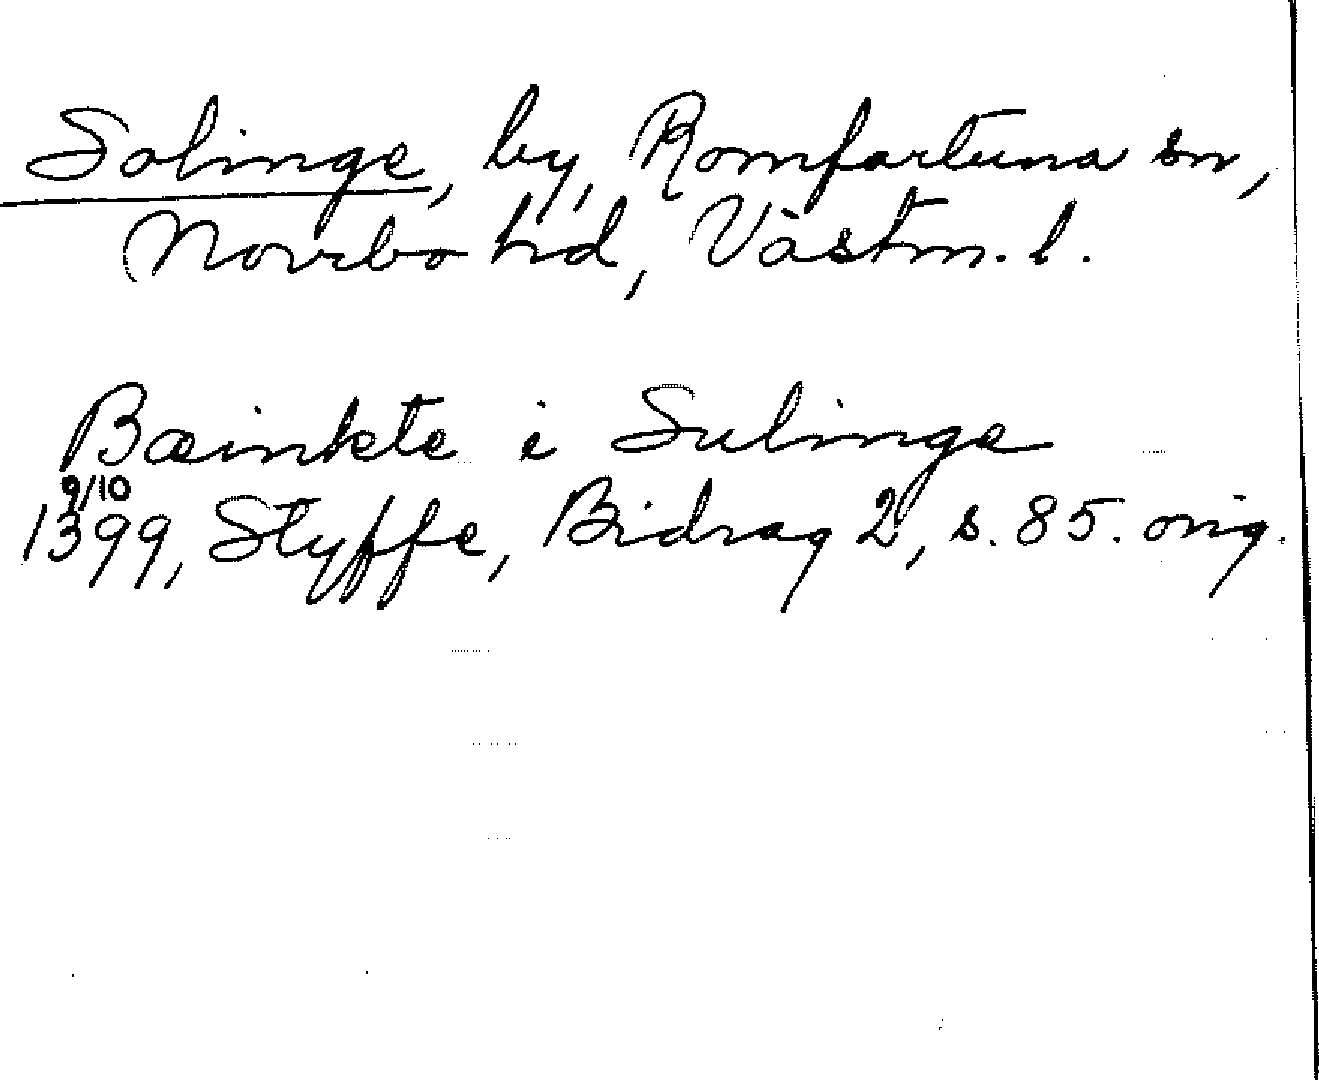 Solinge, by, Romfartuna sn,
Norrbo hd, Västm. l.
Bæinkte i Sulinge
9/10
1399, Styffe, Bidrag 2, s. 85. orig.